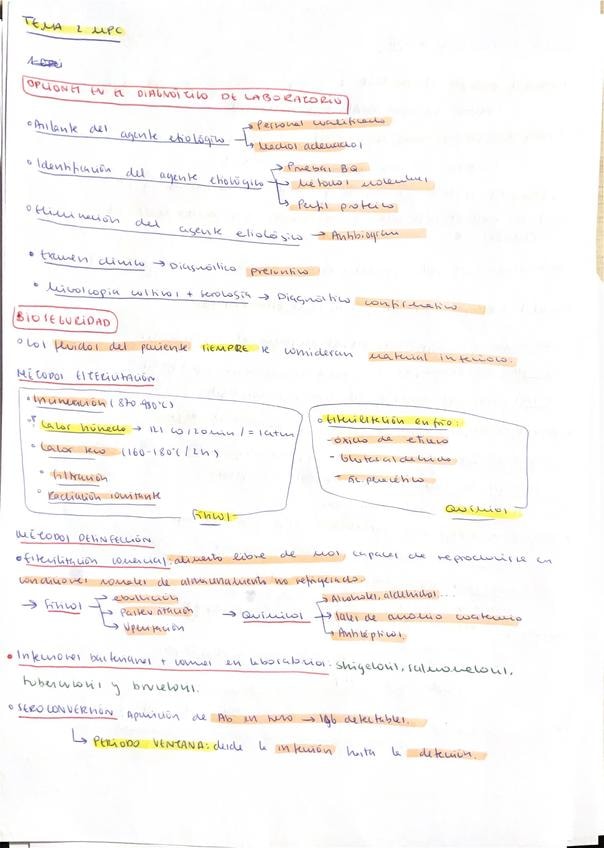 TEMA 2 MPC
OPCIONES EN EL DIAGNÓSTICO DE LABORATORIO
• Aislante del agente etiológico → Personal cualificado
→ Medios adecuados
• Identificación del agente etiológico → Pruebas BQ
→ Métodos moleculares
→ Perfil proteico
• Eliminación del agente etiológico → Antibiograma
• Examen clínico → Diagnóstico presuntivo
• Microscopia cultivos + serología → Diagnóstico confirmativo
BIOSEGURIDAD
• Los fluidos del paciente SIEMPRE se consideran material infeccioso.
MÉTODOS ESTERILIZACIÓN
• Incineración (870-980°C)
• Calor húmedo → 121°C/20min/= 1atm
• Calor seco (160-180°C/2h)
• Filtración
• Radiación ionizante
Físicos
• Esterilización en frío:
- óxido de etileno
- Glutaraldehido
- Ác. peracético
Químicos
MÉTODOS DESINFECCIÓN
• Esterilización comercial: alimento libre de mos capaces de reproducirse en
condiciones normales de almacenamiento no refrigerado.
→ Físicos → ebullición
→ Pasteurización
→ Vaporización
→ Químicos → Alcoholes, aldehidos...
→ Sales de amonio cuaternario
→ Antisépticos.
• Infecciones bacterianas + comunes en laboratorios: shigelosis, salmonelosis,
tuberculosis y brucelosis.
• SEROCONVERSIÓN Aparición de Ab en suero → Igb detectables.
↳ PERIODO VENTANA: desde la infección hasta la detección.